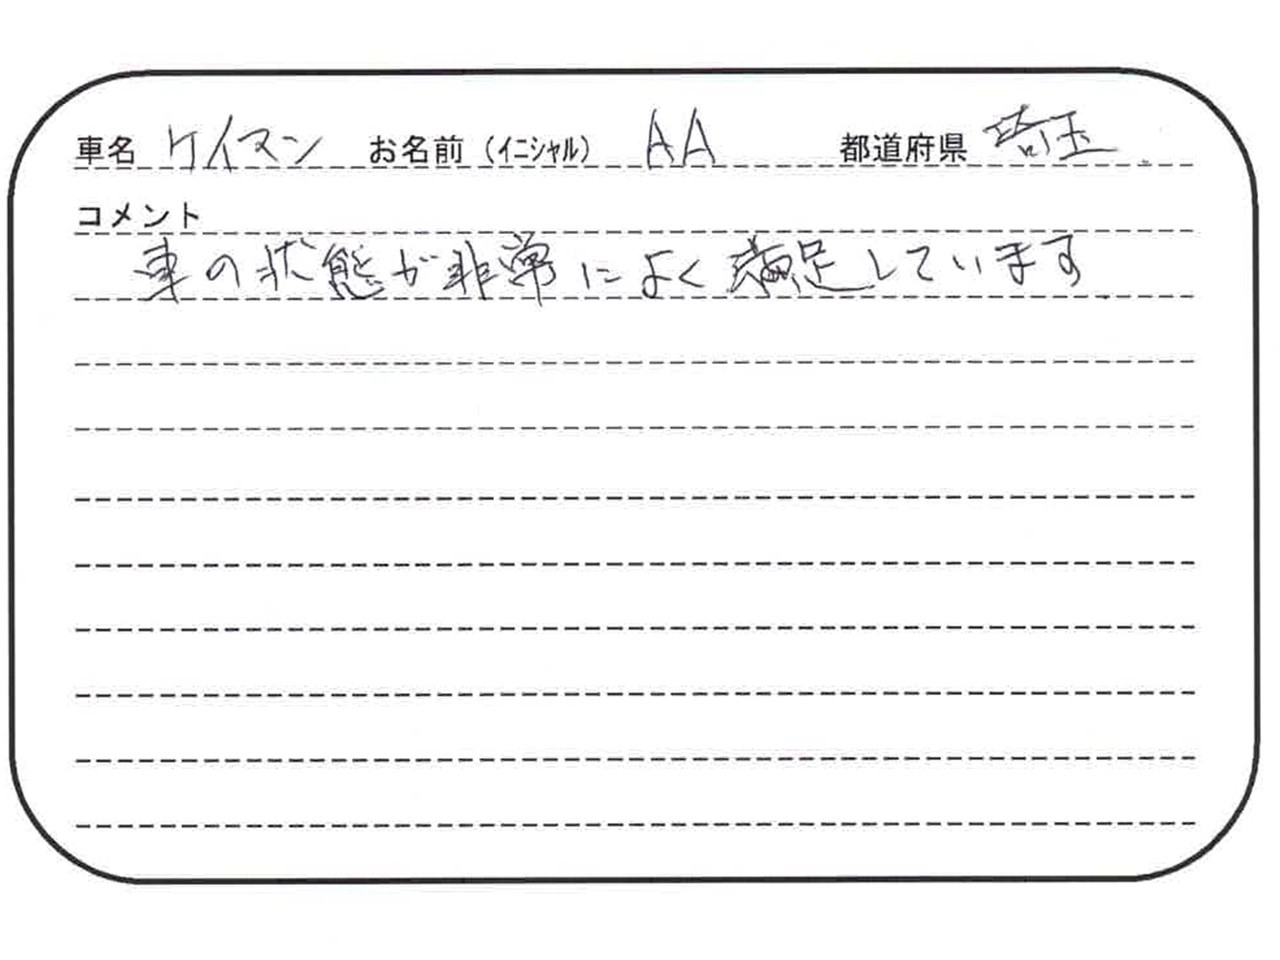 車名 ケイマン お名前（イニシャル） AA 都道府県 埼玉
コメント
車の状態が非常によく満足しています